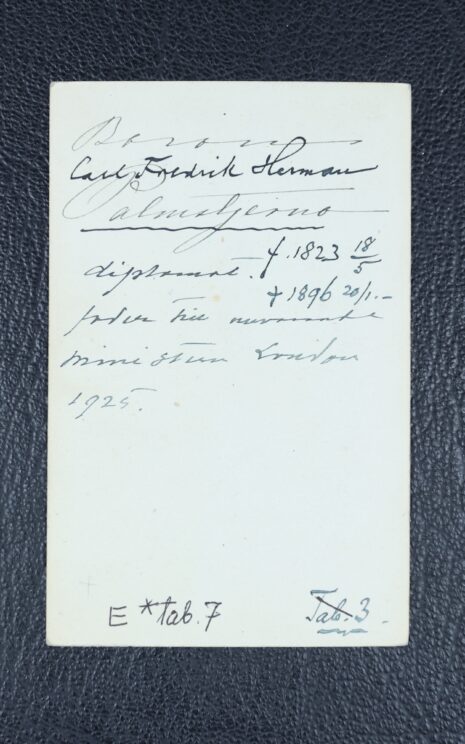 Baron
Carl Fredrik Herman
Palmstjerna
diplomat. f. 1823 18/5
† 1896 20/1.-
fader till nuvarande
ministern London
1925.
E *tab. 7
Tab. 3.